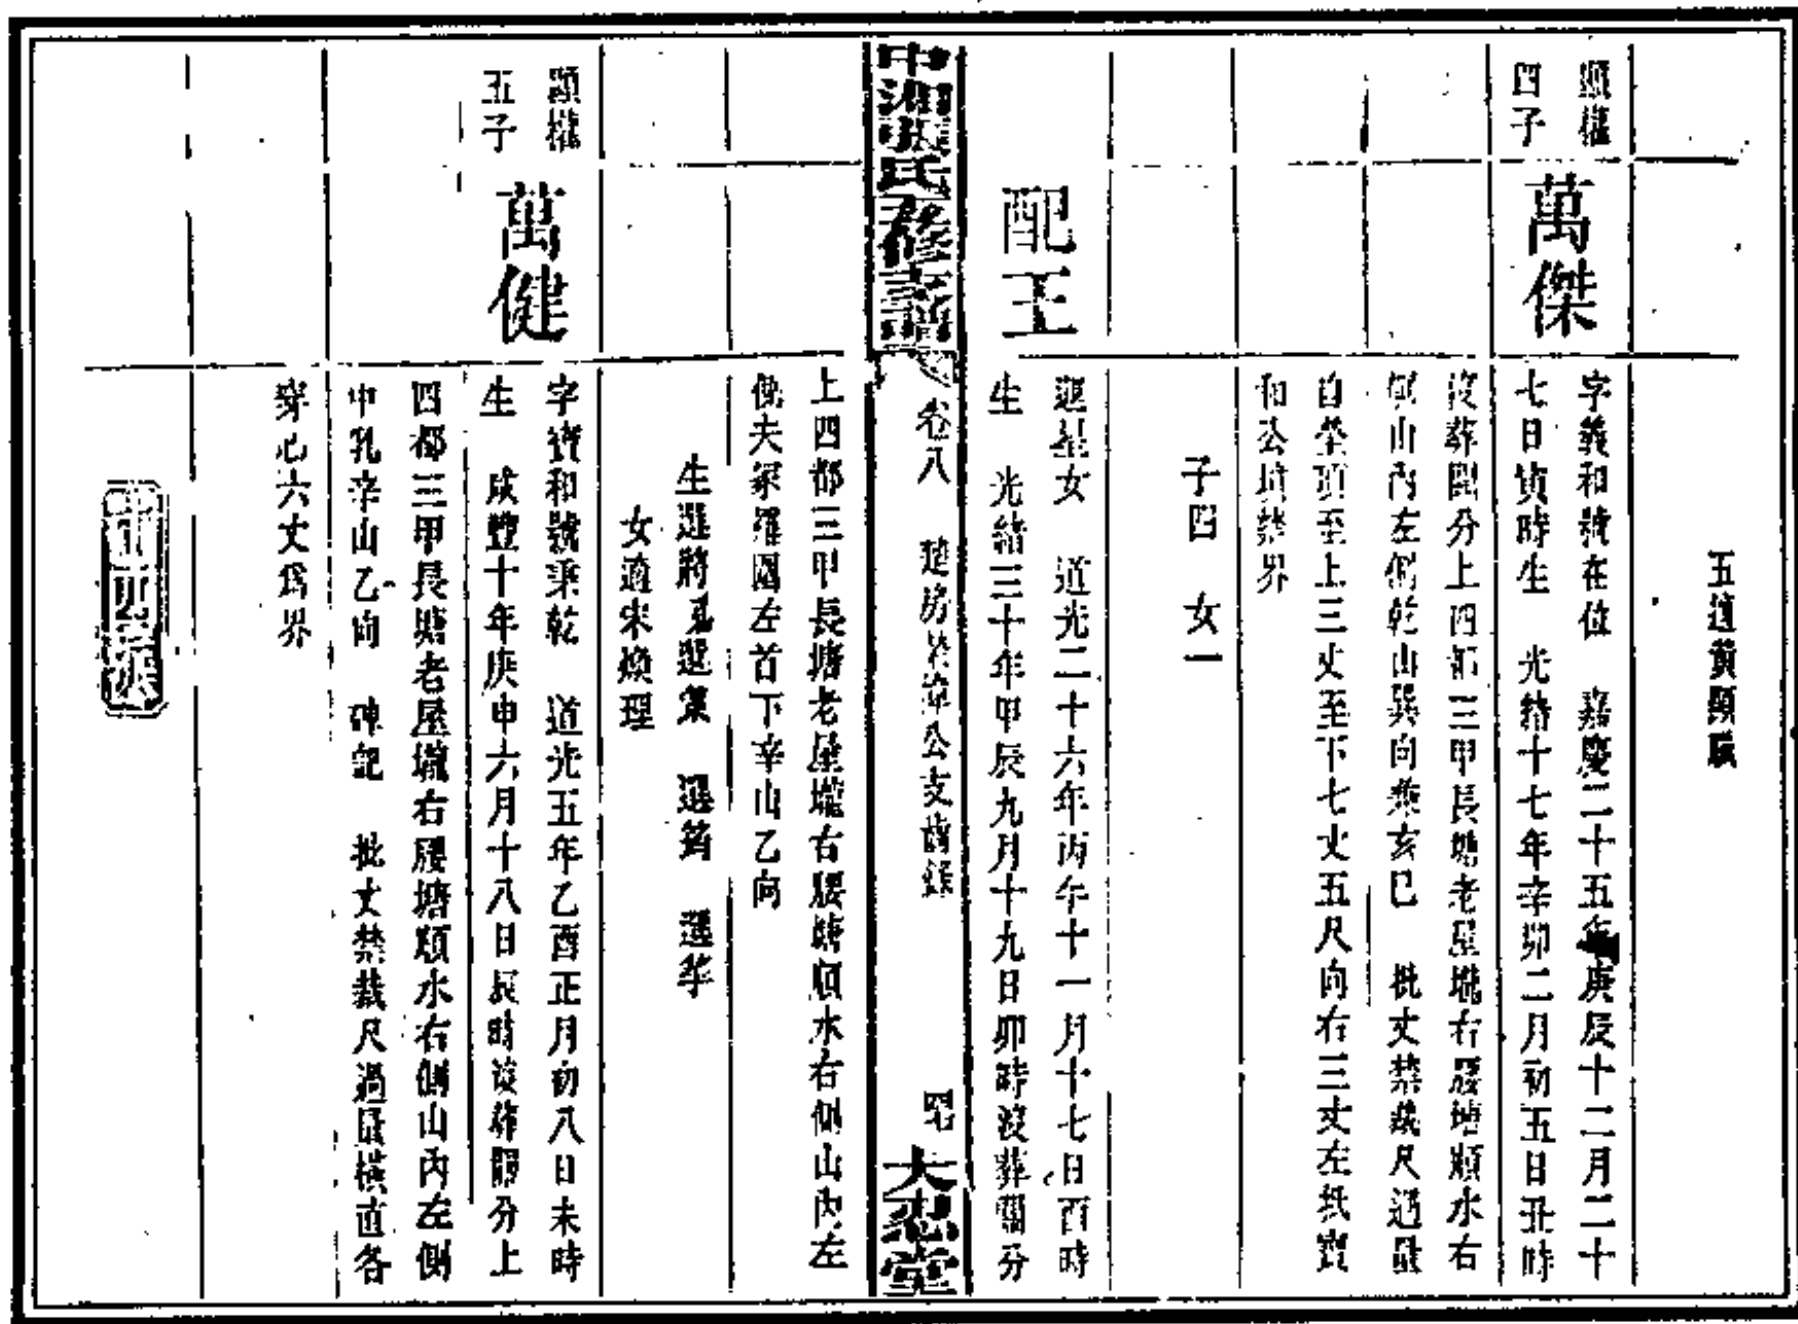 五適黃顯
顯權
四子
萬傑
字義和號在位 嘉慶二十五年庚辰十二月二十
七日寅時生 光緒十七年辛卯二月初五日丑時
沒葬鬮分上四都三甲長塘老屋壠右腰塘順水右
側山內左側乾山巽向兼亥巳 批丈禁裁尺過量
自塋頂至上三丈至下七丈五尺向右三丈左抵寶
和公墳禁界
子四 女一
配王
選星女 道光二十六年丙午十一月十七日酉時
生 光緒三十年甲辰九月十九日卯時沒葬鬮分
中湘張氏修譜
卷八 楚房 公支齒錄
大忠堂
上四都三甲長塘老屋壠右腰塘順水右側山內左
傍夫冢羅圍左首下辛山乙向
生選將 選集 選籌 選華
女適宋煥理
顯權
五子
萬健
字寶和號秉乾 道光五年乙酉正月初八日未時
生 咸豐十年庚申六月十八日辰時沒葬鬮分上
四都三甲長塘老屋壠右腰塘順水右側山內左側
中乳辛山乙向 碑記 批丈禁裁尺過量橫直各
穿心六丈爲界